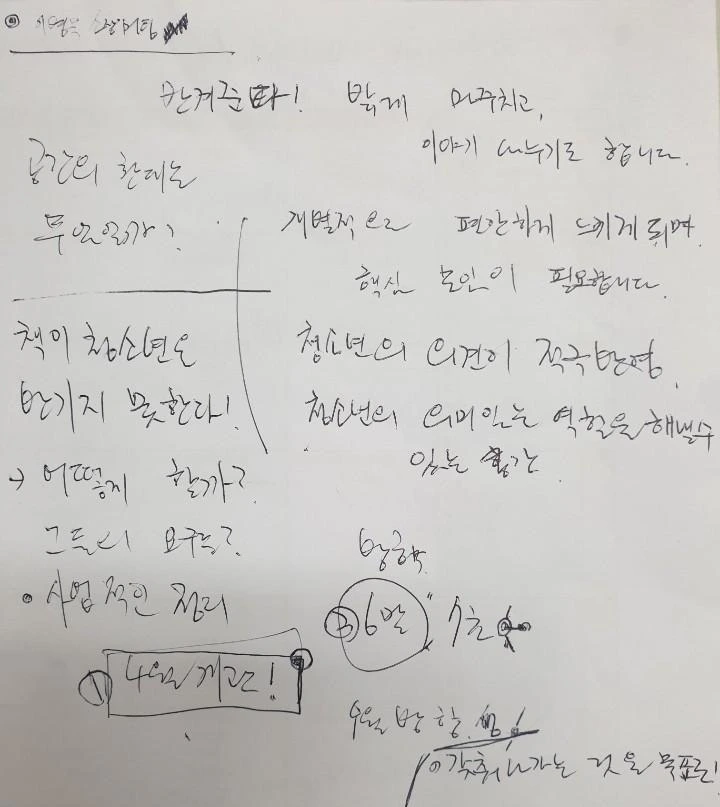 반겨준다! 밝게 마주치고,
이야기 나누기로 합니다.
공간의 한계는
무엇일까?
개별적으로 편안하게 느끼게 되며
핵심 요인이 필요합니다.
책이 청소년을
반기지 못한다!
청소년의 의견이 적극 반영.
청소년의 의미있는 역할을 해낼수
있는 공간
→ 어떻게 할까?
그들의 요구는?
• 사업적인 정리
방학
③ 6말 7초
① 4월 개관!
방향
갖춰나가는 것을 목표로!